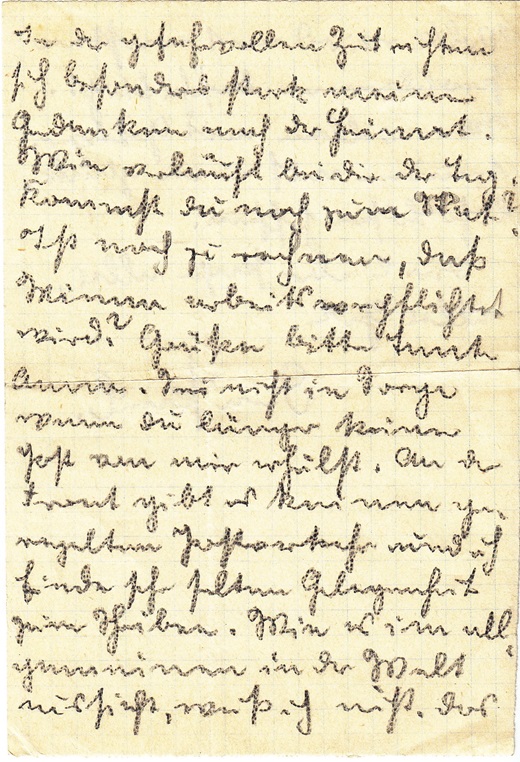 In der gefahrvollen Zeit richten
sich besonders stark meine
Gedanken nach der Heimat.
Wie verläuft bei dir der Tag?
Kommst du noch zum
Ist noch zu rechnen, daß
Minna arbeitsverpflichtet
wird? Grüßen bitte Tante
Anna. Sei nicht in Sorge
wenn du länger keine
Post von mir erhälst. An de
Front gibt es keinen ge-
regelten Postverkehr und ich
finde sehr selten Gelegenheit
zum Schreiben. Wie es im all-
gemeinen in der Welt
aussieht, weiß ich nicht. Das